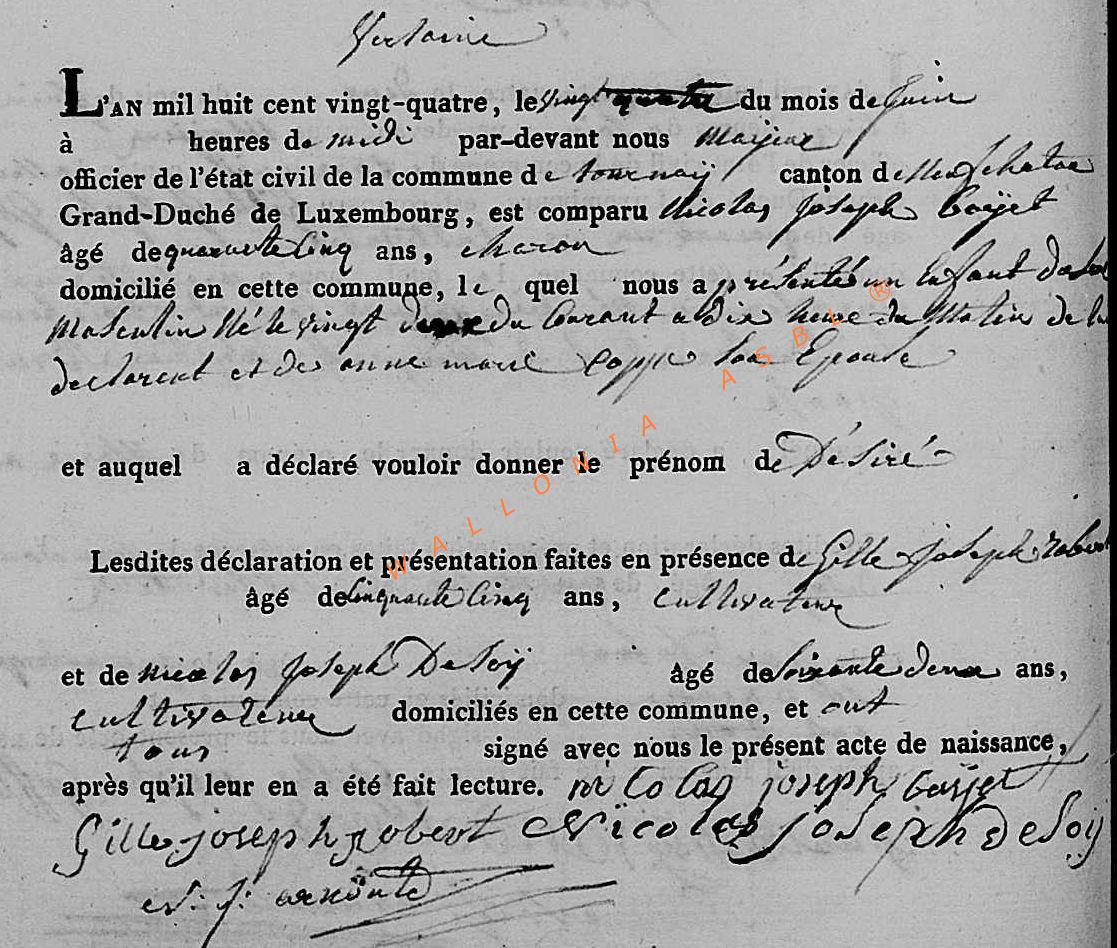 Verlaine
L'AN mil huit cent vingt-quatre, le vingt quatre du mois de juin
à heures de midi par-devant nous
officier de l'état civil de la commune de tournaÿ canton de
Grand-Duché de Luxembourg, est comparu Nicolas Joseph
âgé de quarante Cinq ans, charon
domicilié en cette commune, le quel nous a présentés un Enfant du
Masculin Né le vingt deux du Courant a dix heure du Matin de
declarent et de anne marie son Epouse
et auquel a déclaré vouloir donner le prénom de Désiré
Lesdites déclaration et présentation faites en présence de Gille Joseph robert
âgé de Cinquante Cinq ans, Cultivateur
et de nicolas Joseph Desoÿ âgé de Soixante deux ans,
Cultivateur domiciliés en cette commune, et ont
tous signé avec nous le présent acte de naissance,
après qu'il leur en a été fait lecture. nicolas joseph
Gille joseph robert Nicolas Joseph Desoÿ
WALLONIA ASBL ®